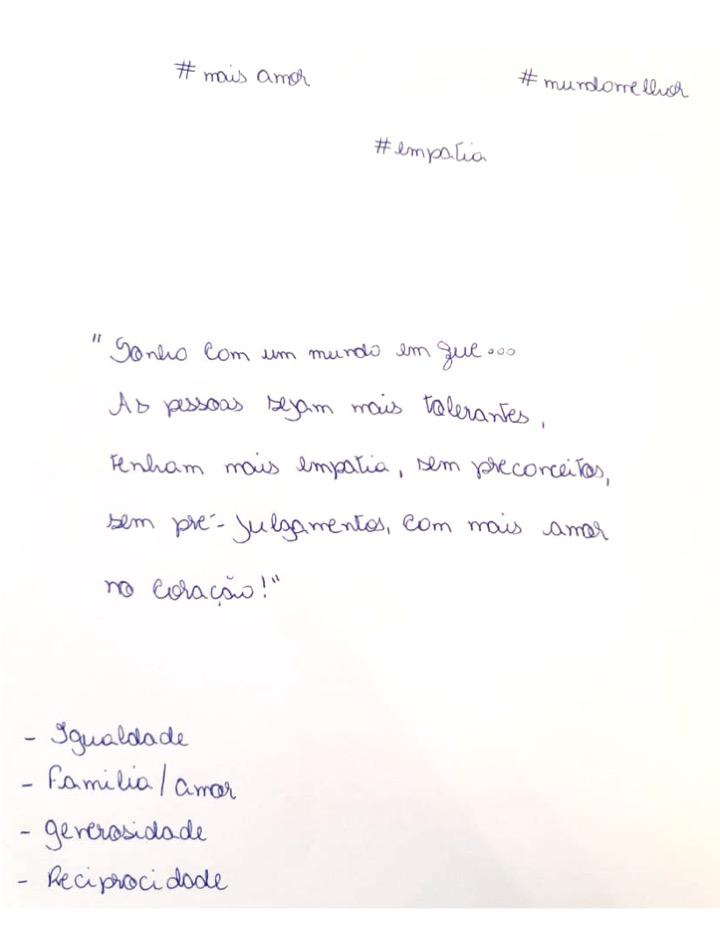 # mais amor
# mundomelhor
# empatia
"Sonho com um mundo em que...
As pessoas sejam mais tolerantes,
tenham mais empatia, sem preconceitos,
sem pré-julgamentos, com mais amor
no coração!"
- Igualdade
- família/amor
- generosidade
- Reciprocidade